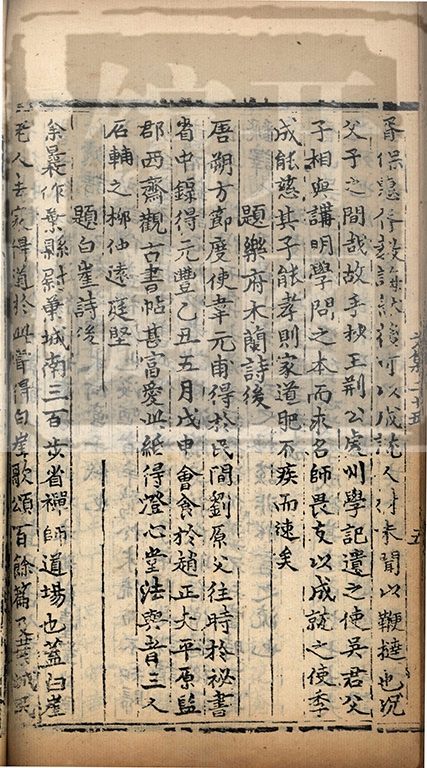 胥保惠胥教誨然後可以成就人材未聞以鞭撻也况
父子之間哉故手抄王荊公虔州學記遺之使吳君父
子相與講明學問之本而求名師畏友以成就之使季
成能慈其子能孝則家道肥不疾而速矣
題樂府木蘭詩後
唐朔方節度使韋元甫得於民間劉原父往時於祕書
省中錄得元豐乙丑五月戊申會食於趙正夫平原監
郡西齋觀古書帖甚富愛此紙得澄心堂法與者三人
石輔之柳仲遠庭堅
題白崖詩後
余曩作葉縣尉葉城南三百步省禪師道場也蓋白崖
老人去家歸道於此嘗得白崖歌頌百餘篇